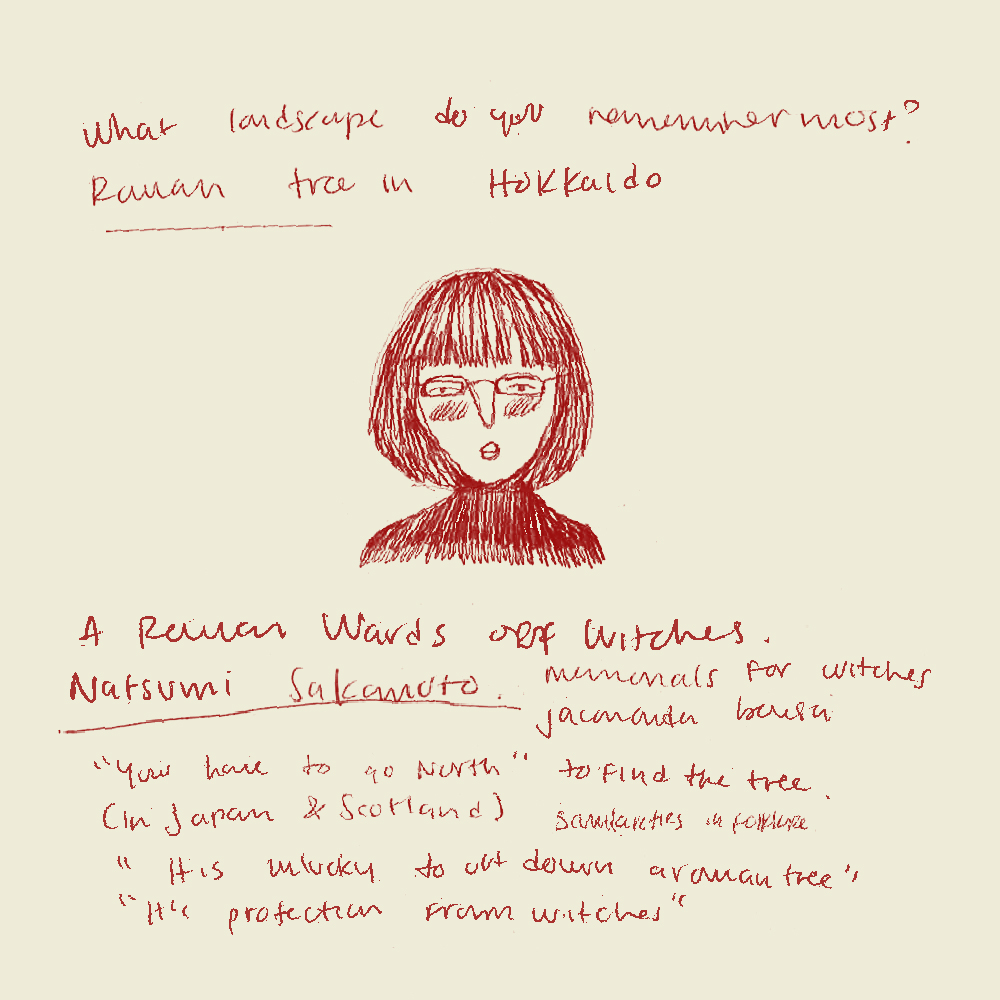 What landscape do you remember most?
Rowan tree in Hokkaido
A Rowan Wards off Witches.
Natsumi Sakamoto.
memorials for witches
"You have to go North" to find the tree.
(in Japan & Scotland)
similarities in folklore
"It is unlucky to cut down a rowan tree"
"It's protection from witches"